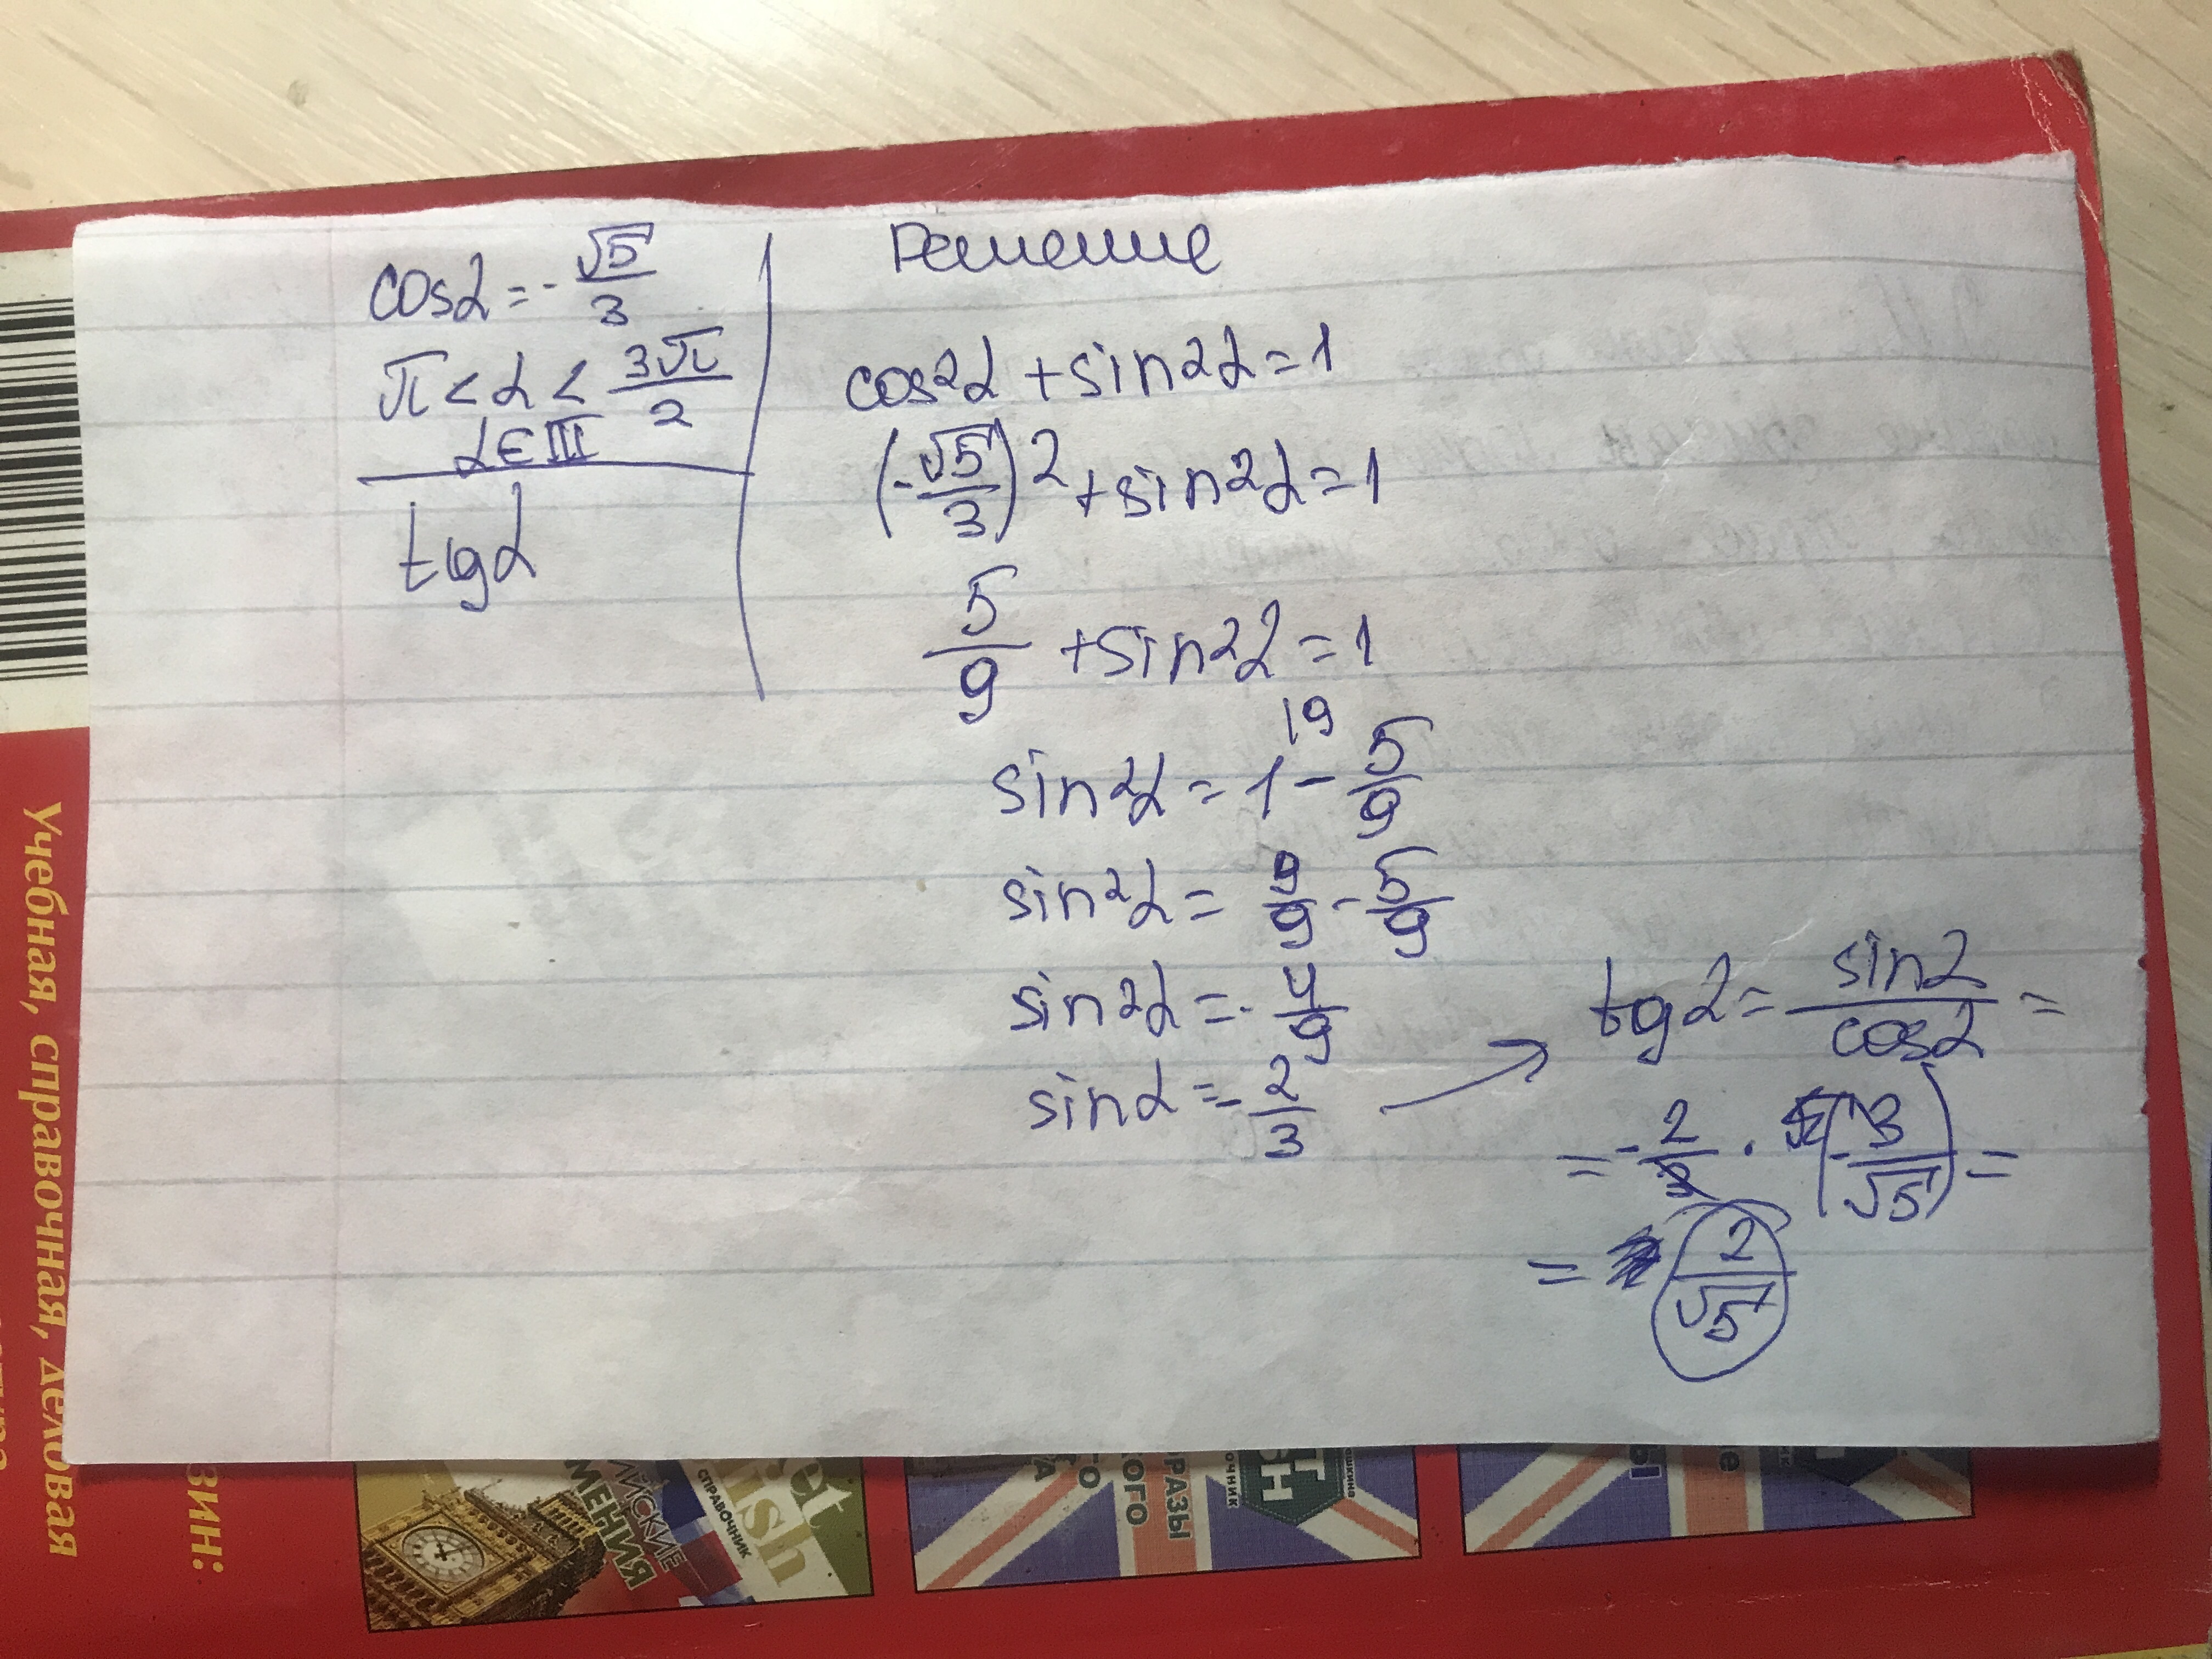 cosα = -√5/3
π < α < 3π/2
α ∈ III
tgα
Решение
cos²α + sin²α = 1
(-√5/3)² + sin²α = 1
5/9 + sin²α = 1
sin²α = 1\9 - 5/9
sin²α = 9/9 - 5/9
sin²α = -4/9
sinα = -2/3
tgα = sinα/cosα =
= -2/3 · (-3/√5) =
= 2/√5
Учебная, справочная, деловая
зин:
МЕНИЯ
СПРАВОЧНИК
ish
РАЗЫ
КОГО